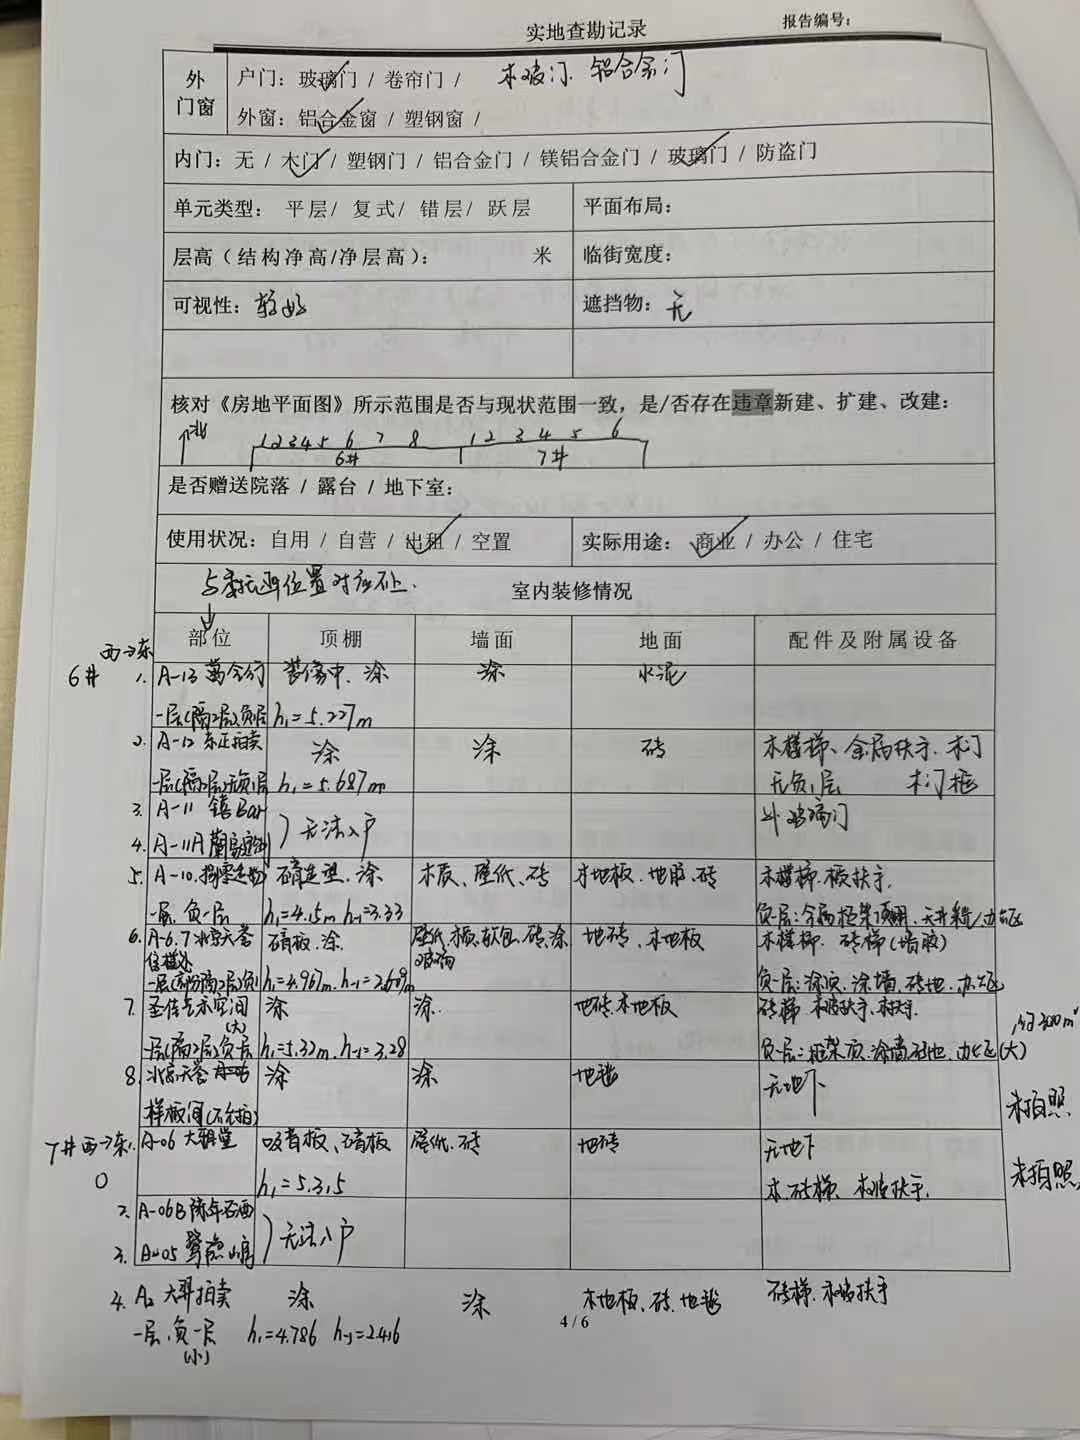 实地查勘记录
报告编号：
外门窗
户门：玻璃门 / 卷帘门 / 木玻门、铝合金门
外窗：铝合金窗 / 塑钢窗 /
内门：无 / 木门 / 塑钢门 / 铝合金门 / 镁铝合金门 / 玻璃门 / 防盗门
单元类型： 平层/ 复式/ 错层/ 跃层
平面布局：
层高（结构净高/净层高）： 米
临街宽度：
可视性：较好
遮挡物：无
核对《房地平面图》所示范围是否与现状范围一致，是/否存在违章新建、扩建、改建：
北 1 2 3 4 5 6 7 8 1 2 3 4 5 6
6# 7#
是否赠送院落 / 露台 / 地下室：
使用状况：自用 / 自营 / 出租 / 空置
实际用途： 商业 / 办公 / 住宅
位置对应
室内装修情况
部位 顶棚 墙面 地面 配件及附属设备
西→东
6# 1. A-13 装修中、涂 涂 水泥
一层(隔2层)负1层 h₁=5.227m
2. A-12 东正拍卖 涂 涂 砖 木楼梯、金属扶手、木门
一层(隔2层)无负1层 h₁=5.687m 无负1层 木门框
3. A-11 Bar 无法入户 外玻璃门
4. A-11A
5. A-10 石膏造型、涂 木板、壁纸、砖 木地板、地胶、砖 木楼梯、板扶手
一层、负一层 h₁=4.15m h₋₁=3.33 负一层：
6. A-6.7 北京天誉 石膏板、涂 壁纸、木板、软包、砖、涂 玻璃 地砖、木地板 木楼梯、砖梯
h₁=4.967m、 负一层：涂顶、涂墙、砖地、办公区
7. 圣佳 空间(大) 涂 涂 地砖、木地板 砖梯 木玻扶手、木扶手
一层(隔2层)负一层 h₁=5.32m、h₋₁=3.28 负一层：框架顶、涂墙、砖地、办公区(大) 约300m²
8. 北京天誉 涂 涂 地毯 无地下
样板间(不允拍) 未拍照
7#西→东 1. A-06 大翔堂 吸音板、石膏板 壁纸、砖 地砖 无地下
h₁=5.315 木、砖梯、木玻扶手 未拍照
2. A-06B 陈年石西 无法入户
3. A-05
4. A2 大羿拍卖 涂 涂 木地板、砖、地毯 砖梯、木玻扶手
4 / 6
一层、负一层 h₁=4.786 h₋₁=2.416
(小)